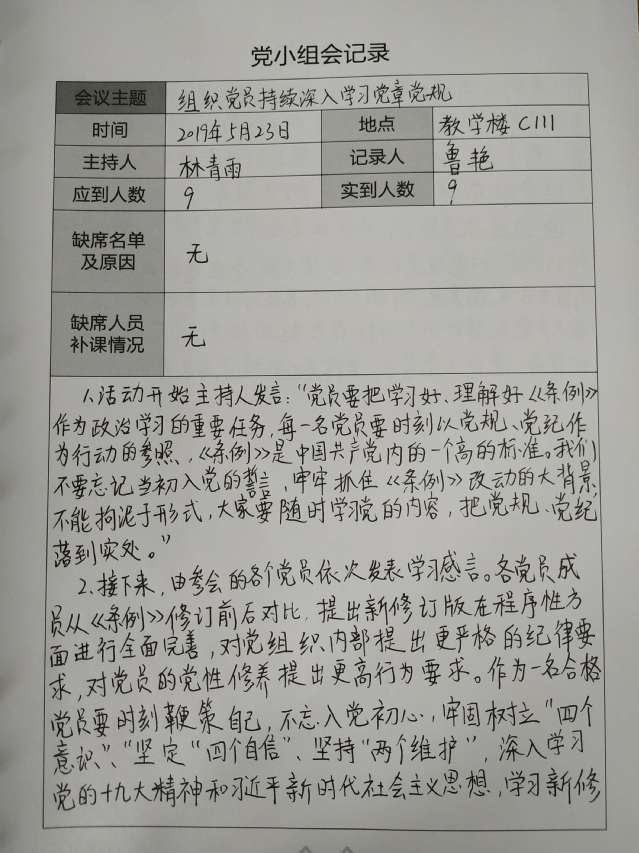 党小组会记录
会议主题 组织党员持续深入学习党章党规
时间 2019年5月23日 地点 教学楼C111
主持人 林青雨 记录人 鲁艳
应到人数 9 实到人数 9
缺席名单
及原因 无
缺席人员
补课情况 无
1.活动开始主持人发言:“党员要把学习好、理解好《条例》
作为政治学习的重要任务,每一名党员要时刻以党规、党纪作
为行动的参照,《条例》是中国共产党内的一个高的标准。我们
不要忘记当初入党的誓言,牢牢抓住《条例》改动的大背景,
不能拘泥于形式,大家要随时学习党的内容,把党规、党纪
落到实处。”
2.接下来,由参会的各个党员依次发表学习感言。各党员成
员从《条例》修订前后对比,提出新修订版在程序性方
面进行全面完善,对党组织内部提出更严格的纪律要
求,对党员的党性修养提出更高行为要求。作为一名合格
党员要时刻鞭策自己,不忘入党初心,牢固树立“四个
意识”、“坚定“四个自信”、坚持“两个维护”,深入学习
党的十九大精神和习近平新时代社会主义思想,学习新修